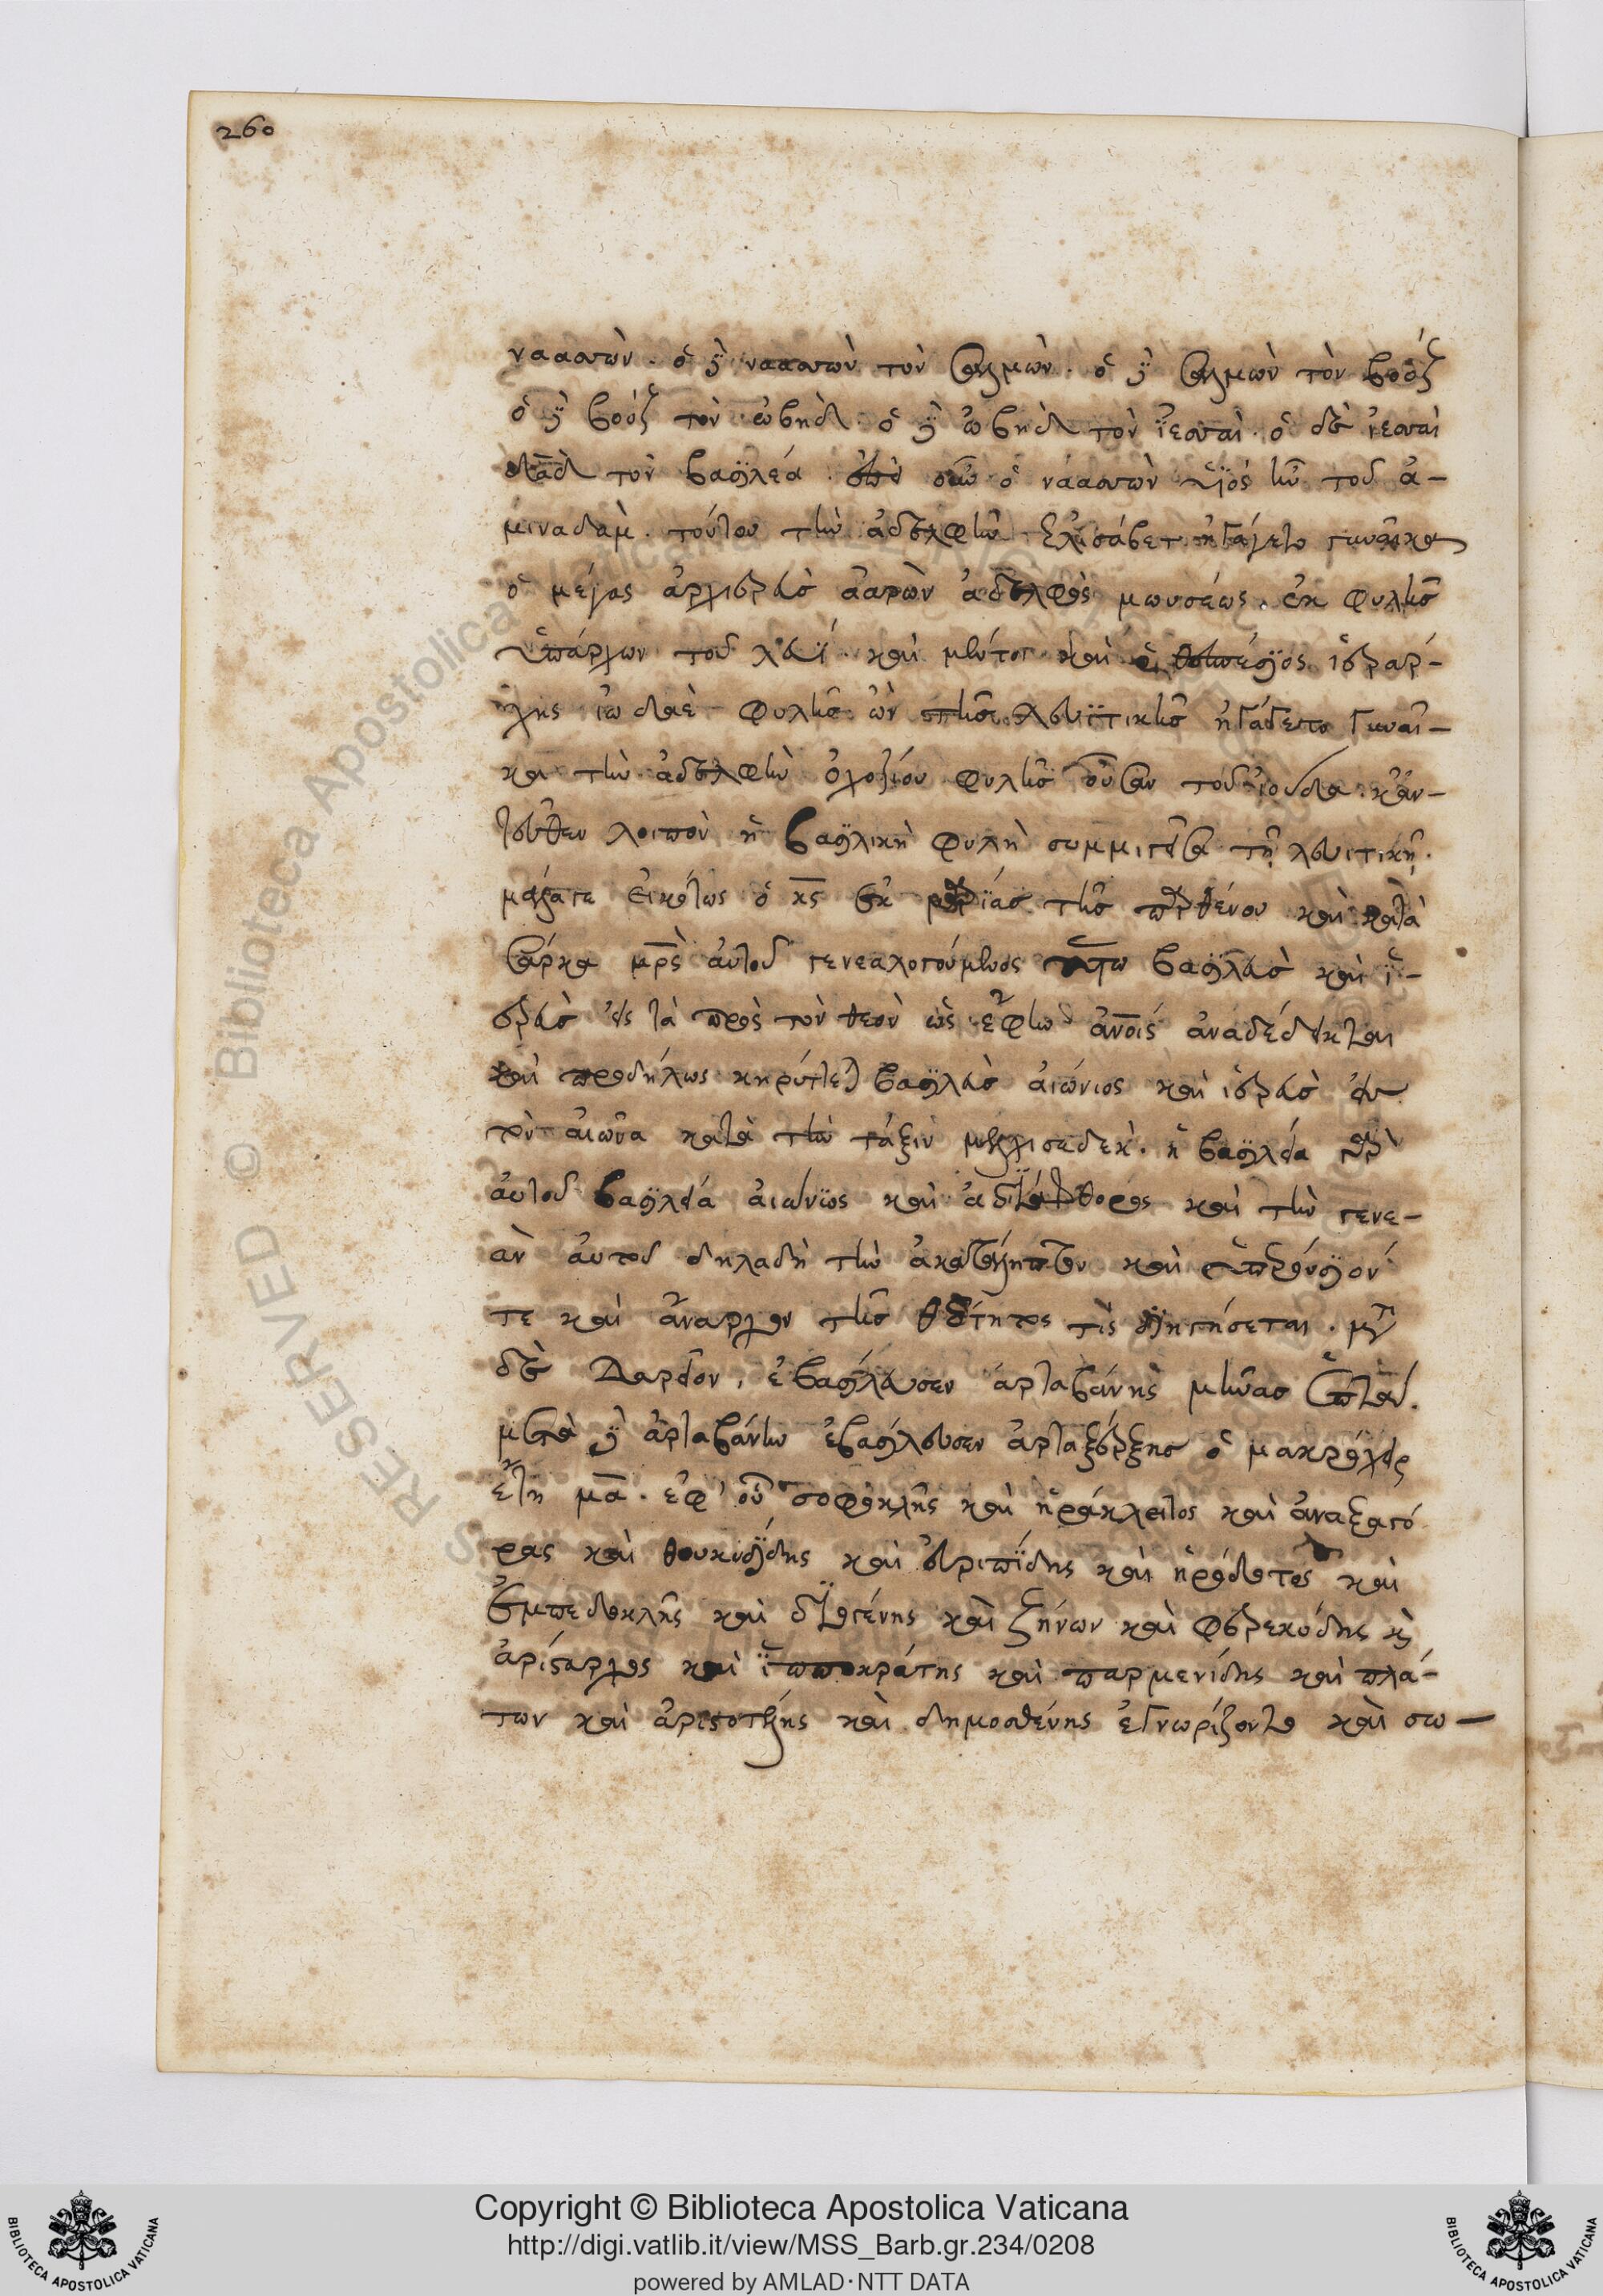 260
ναασσών. ὁ δὲ ναασσὼν τὸν σαλμών. ὁ δὲ σαλμὼν τὸν βοόζ
ὁ δὲ βοὸζ τὸν ὠβήδ. ὁ δὲ ὠβὴδ τὸν ἰεσσαί. ὁ δὲ ἰεσσαὶ
δᾱδ τὸν βασιλέα. οὖν ὁ ναασσὼν υἱός ἦν τοῦ ἀ-
μιναδαμ. τούτου τὴν ἀδελφὴν ἐλισάβετ ἠγάγετο γυναῖκα
ὁ μέγας ἀρχιερεὺς ἀαρὼν ἀδελφὸς μωυσέως. ἐκ φυλῆς
ὑπάρχων τοῦ λευί. καὶ μέντοι καὶ ὁ ἱεράρ-
χης ἰωδαὲ φυλῆς ὢν τῆς λευϊτικῆς ἠγάγετο γυναῖ-
κα τὴν ἀδελφὴν ὀχοζίου φυλῆς οὖσαν τοῦ ἰούδα. κἀν-
τεῦθεν λοιπὸν ἡ βασιλικὴ φυλὴ συμμιγεῖσα τῇ λευιτικῇ.
μάλα γε εἰκότως ὁ κ̄ς ἐκ μαρίας τῆς παρθένου καὶ κατὰ
σάρκα μρ̄ς αὐτοῦ γενεαλογούμενος βασιλεὺς καὶ ἱ-
ερεὺς εἰς τὰ πρὸς τὸν θεὸν ὡς ἔφην ἀνοις ἀναδέδεικται
καὶ προδήλως κηρύττεται βασιλεὺς αἰώνιος καὶ ἱερεὺς εἰς
τὸν αἰῶνα κατὰ τὴν τάξιν μελχισεδέκ. ἡ βασιλεία γὰρ
αὐτοῦ βασιλεία αἰώνιος καὶ ἀδιάφθορος καὶ τὴν γενε-
ὰν αὐτοῦ δηλαδὴ τὴν ἀκατάληπτον καὶ ὑπερούσιόν
τε καὶ ἄναρχον τῆς θεότητος τίς διηγήσεται. μετὰ
δὲ Δαρεῖον, ἐβασίλευσεν ἀρταβάνης μῆνας ἑπτά.
μετὰ δὲ ἀρταβάνην ἐβασίλευσεν ἀρταξέρξης ὁ μακρόχειρ
ἔτη μ̄α. ἐφ' οὗ σοφοκλῆς καὶ ἡράκλειτος καὶ ἀναξαγό
ρας καὶ θουκυδίδης καὶ εὐριπίδης καὶ ἡρόδοτος καὶ
ἐμπεδοκλῆς καὶ διογένης καὶ ζήνων καὶ φερεκύδης κ̀
ἀρίσταρχος καὶ ἱπποκράτης καὶ παρμενίδης καὶ πλά-
των καὶ ἀριστοτέλης καὶ δημοσθένης ἐγνωρίζοντο καὶ σω-
© Biblioteca Apostolica Vaticana
RESERVED
Copyright © Biblioteca Apostolica Vaticana
http://digi.vatlib.it/view/MSS_Barb.gr.234/0208
powered by AMLAD·NTT DATA
BIBLIOTECA APOSTOLICA VATICANA
BIBLIOTECA APOSTOLICA VATICANA